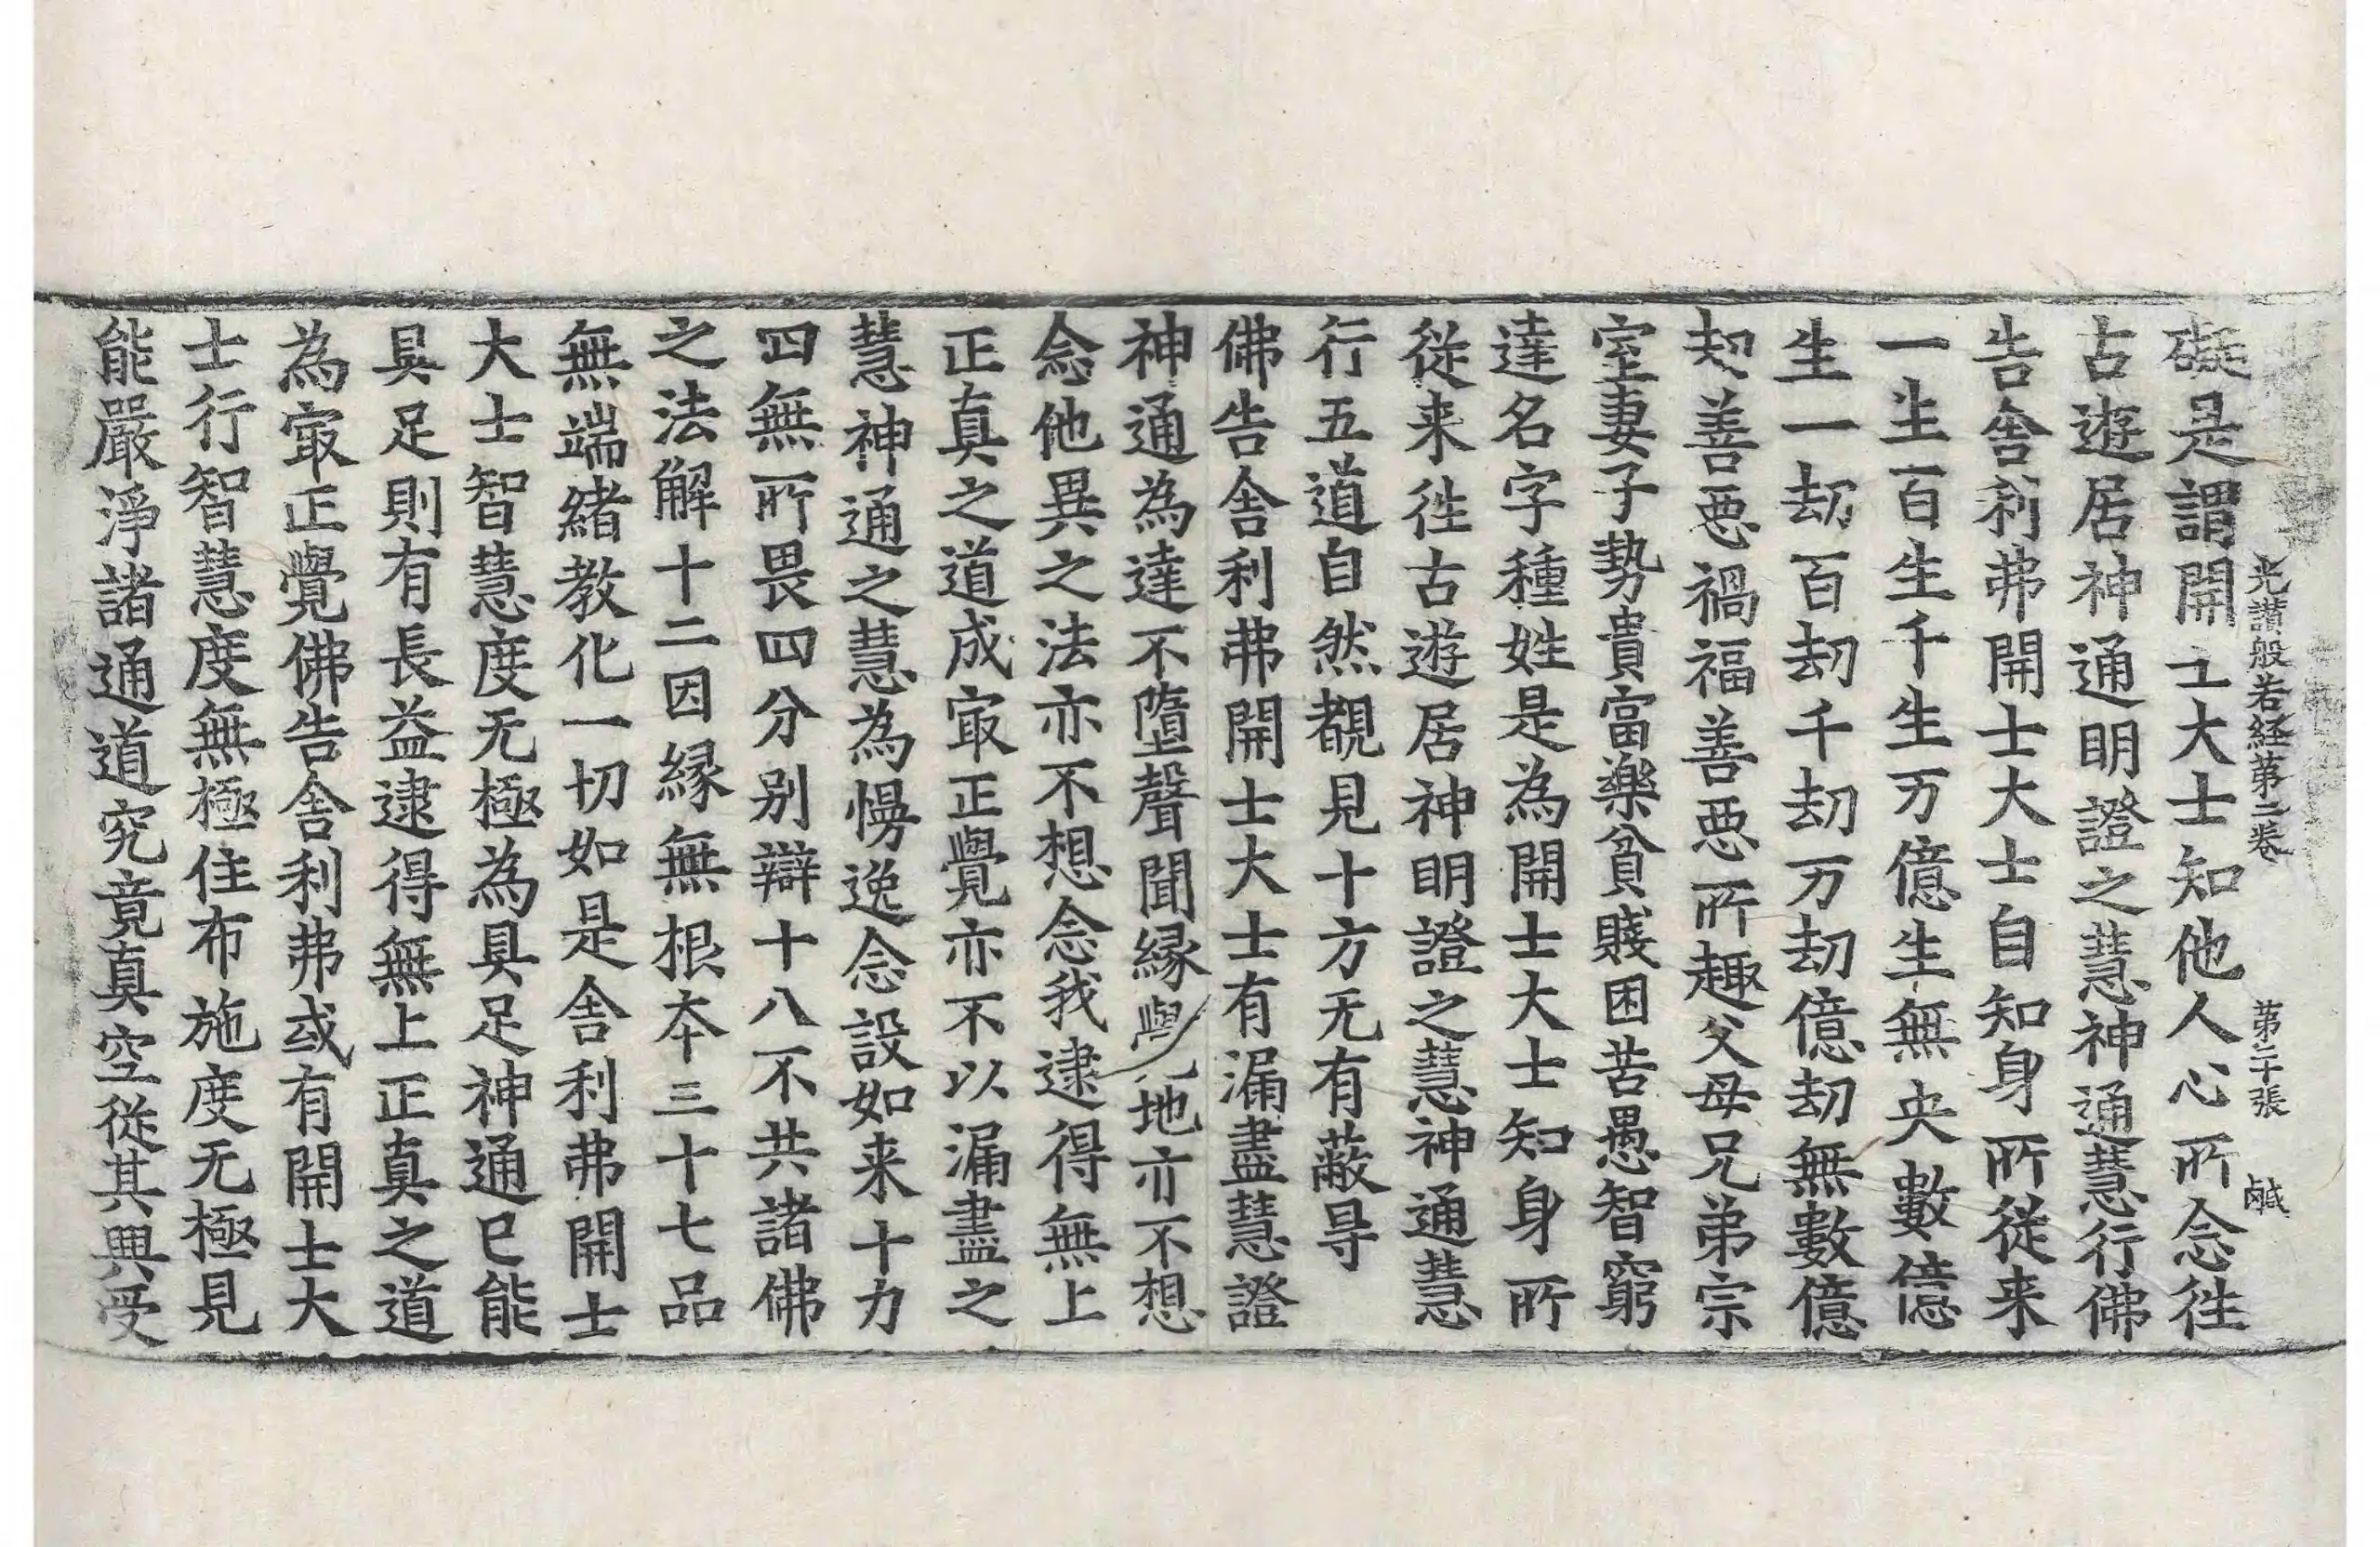 光讃般若経第二巻　第二十張　鹹
礙是謂開士大士知他人心所念徃
古遊居神通明證之慧神通慧行佛
告舎利弗開士大士自知身所従来
一生百生千生万億生無央數億
生一劫百劫千劫万劫億劫無數億
劫善悪禍福善悪所趣父母兄弟宗
室妻子勢貴富樂貧賤困苦愚智窮
達名字種姓是為開士大士知身所
従来徃古遊居神明證之慧神通慧
行五道自然覩見十方无有蔽㝵
佛告舎利弗開士大士有漏盡慧證
神通為達不墮聲聞縁覺地亦不想
念他異之法亦不想念我逮得無上
正真之道成㝡正覺亦不以漏盡之
慧神通之慧為慢逸念設如来十力
四無所畏四分别辯十八不共諸佛
之法解十二因縁無根夲三十七品
無端緒教化一切如是舎利弗開士
大士智慧度无極為具足神通已能
具足則有長益逮得無上正真之道
為㝡正覺佛告舎利弗或有開士大
士行智慧度無極住布施度无極見
能嚴淨諸通道究竟真空従其興受